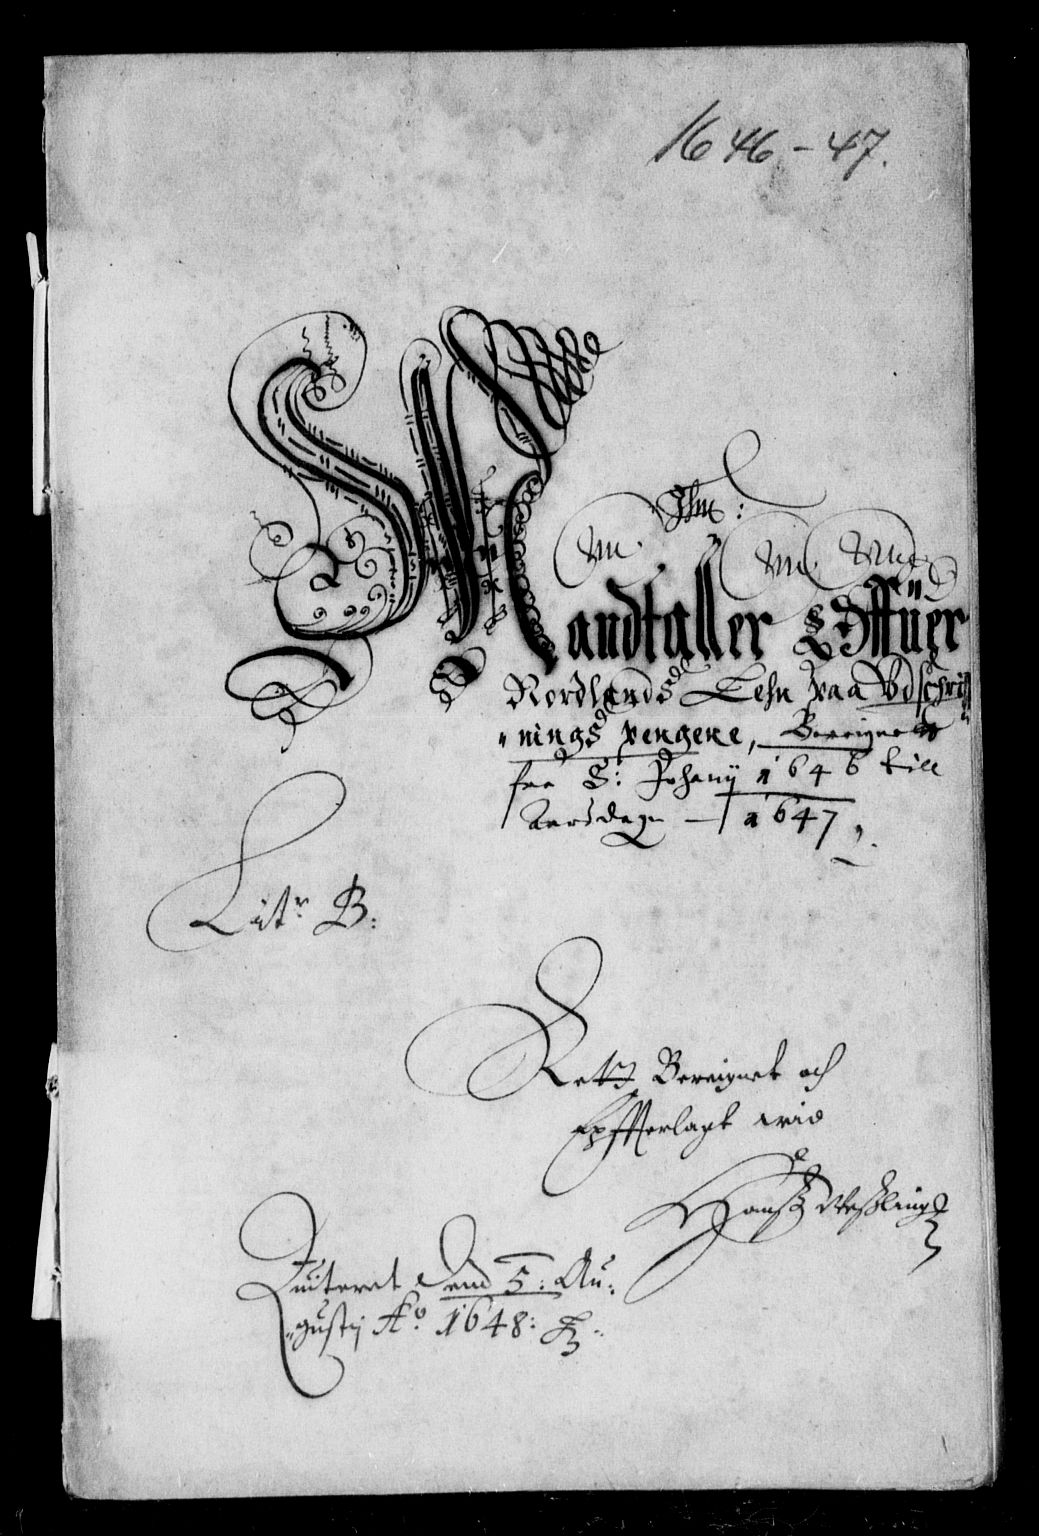 1646-47.
Ihs:
Mandtaller Offuer
Nordlands Lehn paa Vdschriff
nings pengene, Bereignet
fra S: Johanij 1646 till
Aarsdagen 1647
Litr B.
Rett Bereignet och
Offuerlagt wid
Hanß Weßling
Quiteret dem 5: Au:
gustij Ao. 1648: